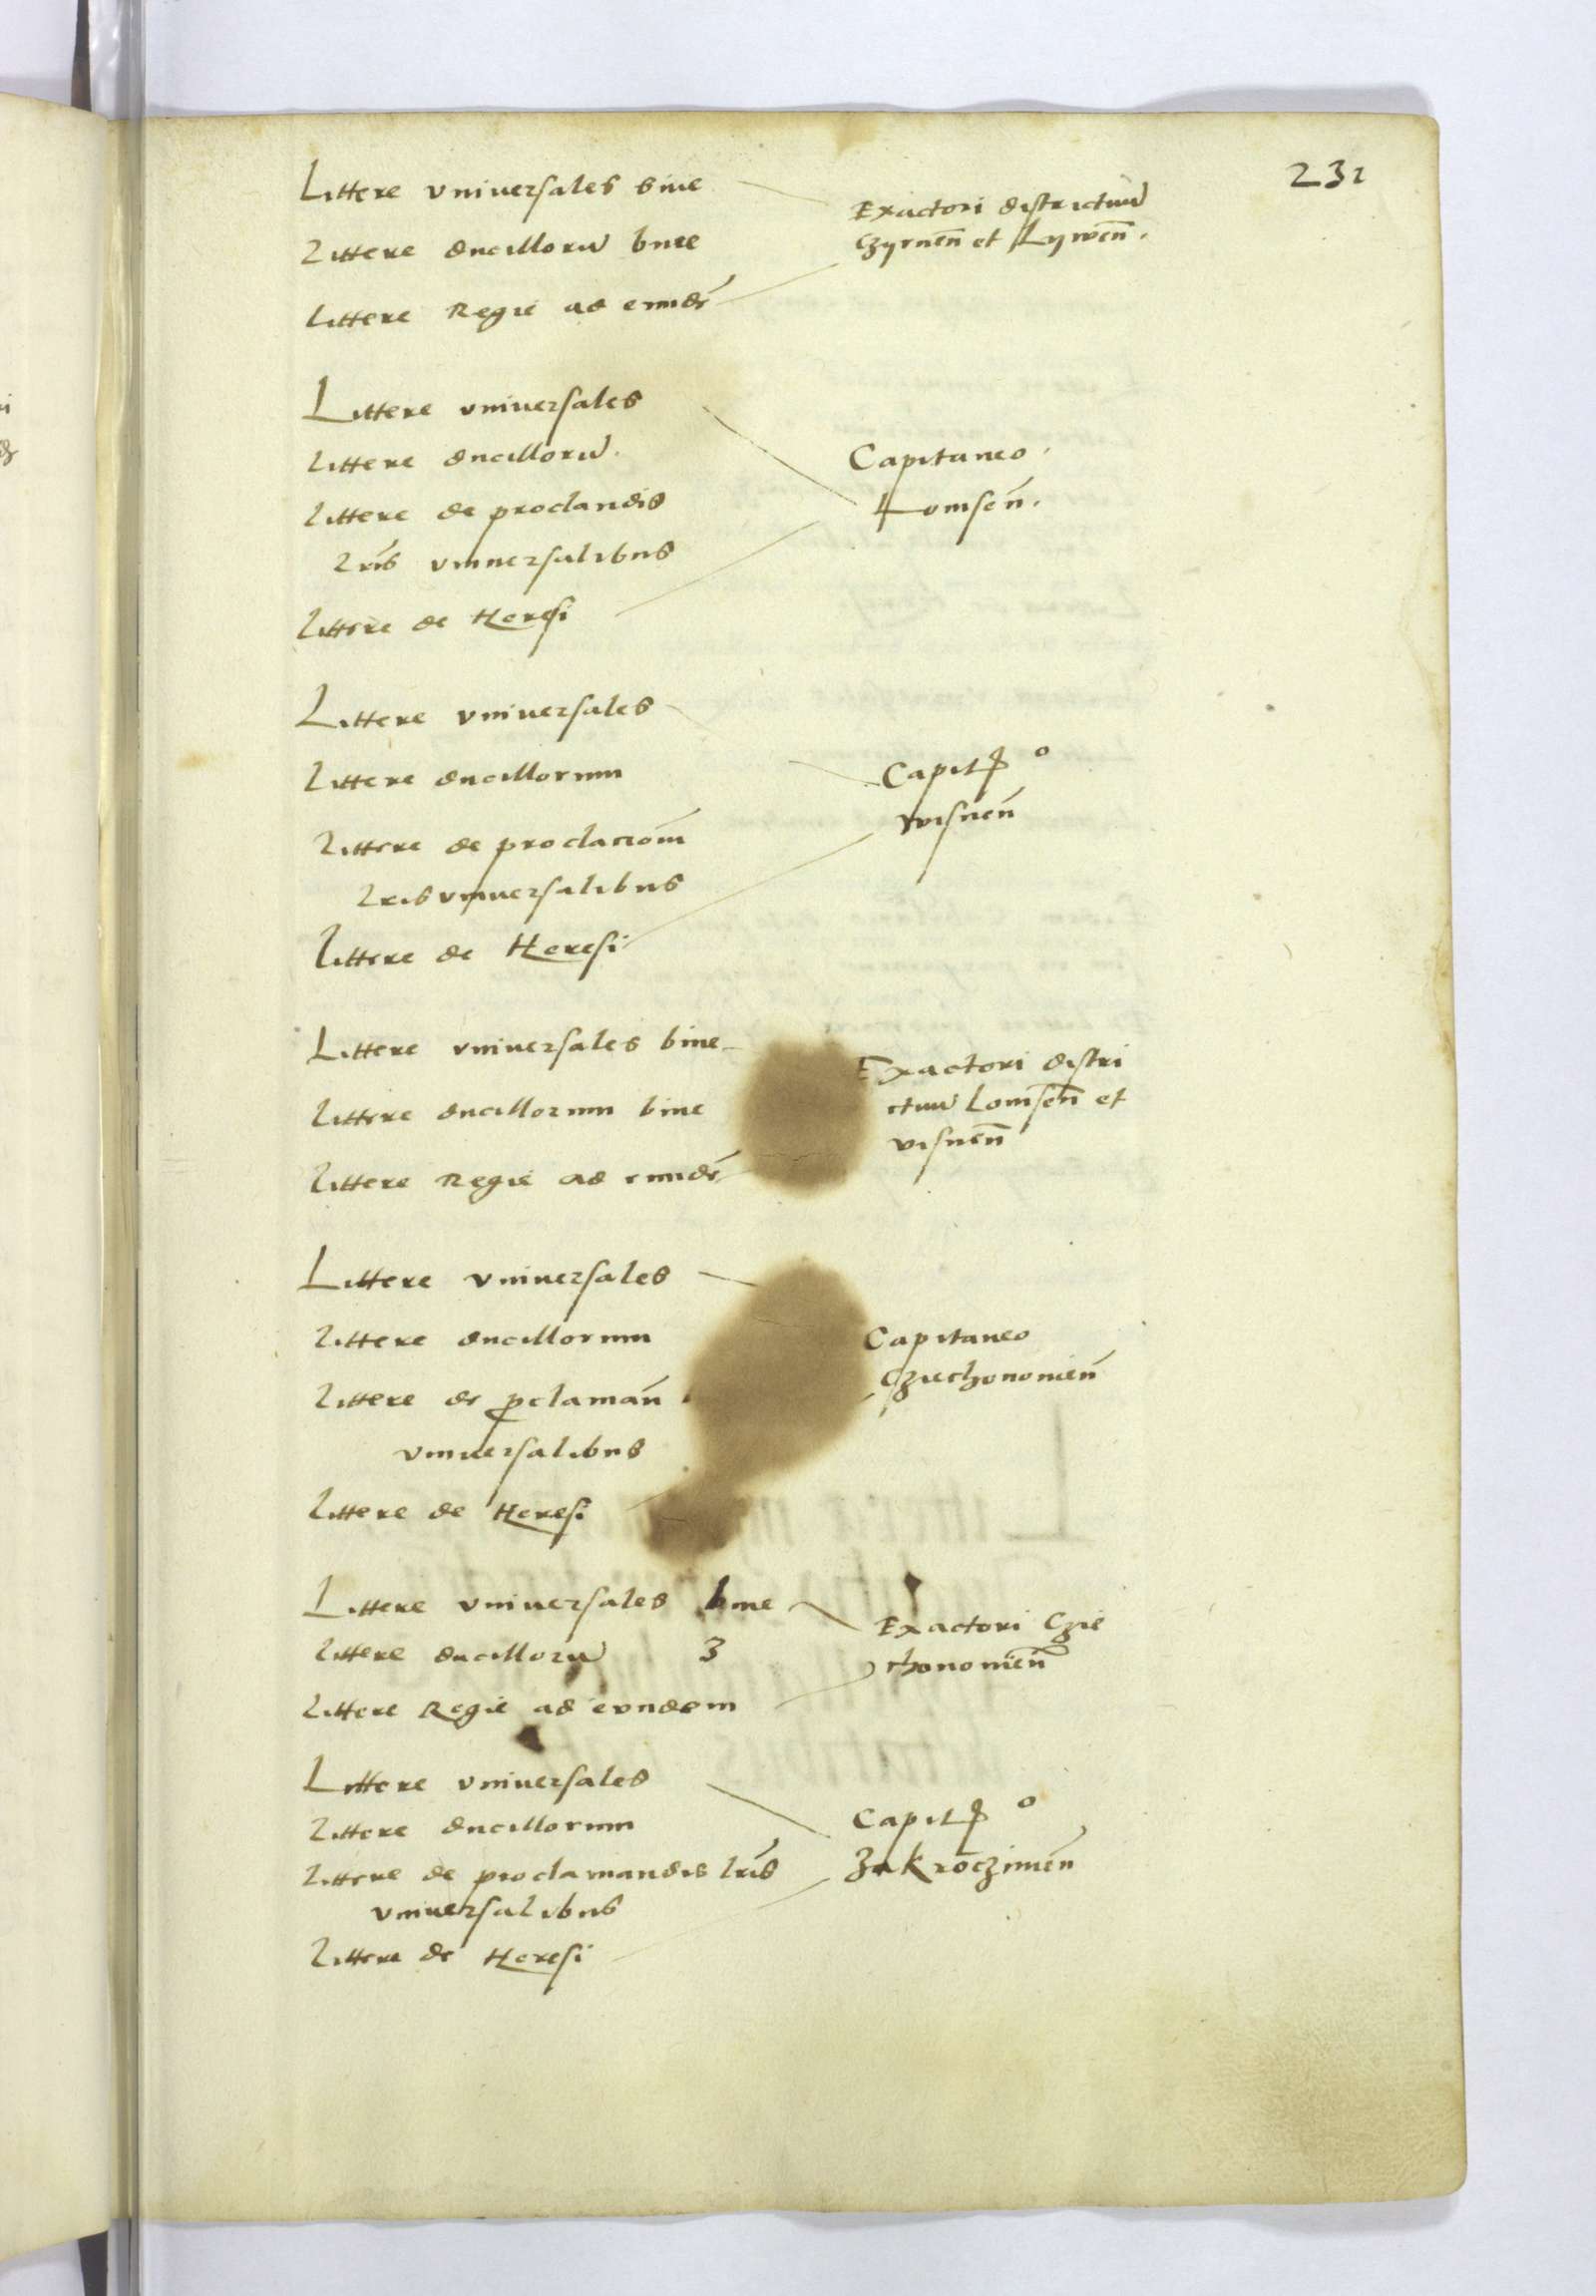 232
Littere vniuersales bine
Littere ducilloru bine
Littere Regie ad eundē
Exactori districtuu
Czyrnen et Lywen.
Littere vniuersales
Littere ducilloru.
Littere de proclandis
lris vniuersalibus
Littere de Heresi
Capitaneo
Lomsen.
Littere vniuersales
Littere ducillorum
Littere de proclaciom
lris vniuersalibus
Littere de Heresi
Capit o
wisnen
Littere vniuersales bine
Littere ducillorum bine
Littere Regie ad eundē
Exactori distri
ctuu Lomsen et
visnen
Littere vniuersales
Littere ducillorum
Littere de pclaman
vniuersalibus
Littere de Heresi
Capitaneo
Cziechonomien
Littere vniuersales bine
Littere ducilloru 3
Littere Regie ad eundem
Exactori Czie
chonomien
Littere vniuersales
Littere ducillorum
Littere de proclamandis lris
vniuersalibus
Littere de Heresi
Capit o
Zakroczimen